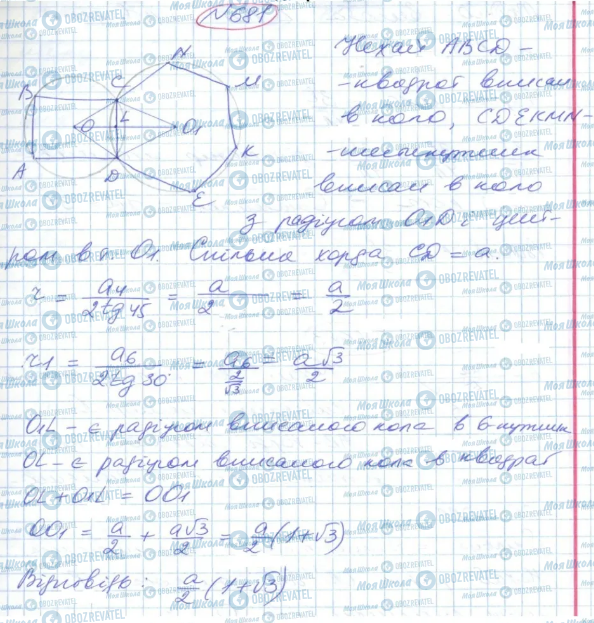 №681
Нехай ABCD –
– квадрат вписан
в коло, CDEKMN –
– шестикутник
вписан в коло
з радіусом O₁D і цент-
ром в т. O₁. Спільна хорда CD = a.
N
B C M
L
O O₁
K
A D
E
r = a₄ / 2tg45 = a / 2 = a / 2
r₁ = a₆ / 2tg30° = a₆ / (2/√3) = a√3 / 2
O₁L – є радіусом вписаного кола в 6-кутник
OL – є радіусом вписаного кола в квадрат
OL + O₁L = OO₁
OO₁ = a/2 + a√3/2 = a/2 (1+√3)
Відповідь: a/2 (1+√3)